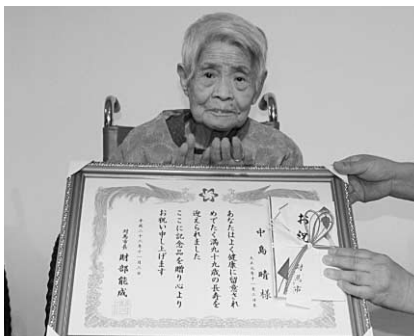 お祝
対馬市
中島 晴 様
あなたはよく健康に留意され
めでたく満九十九歳の長寿を
迎えられました
ここに記念品を贈り心より
お祝い申し上げます
対馬市長 財部能成